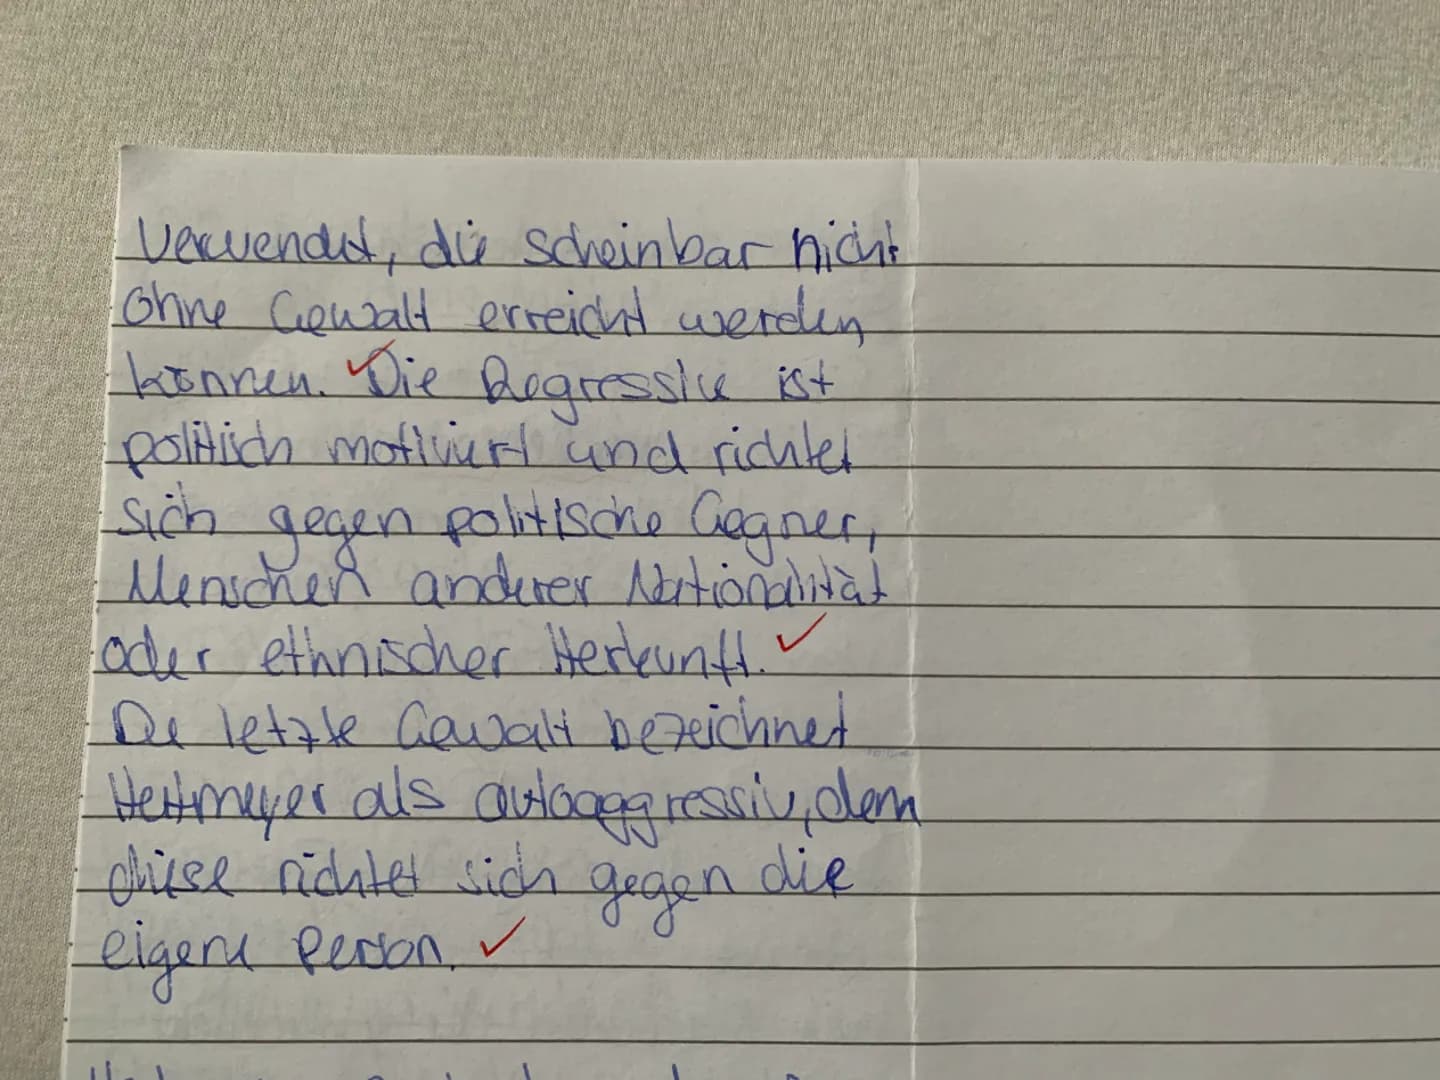 verwendet, die scheinbar nicht
ohne Gewalt erreicht werden
können. Die Regressive ist
politisch motiviert und richtet
sich gegen politische Gegner,
Menschen anderer Nationalität
oder ethnischer Herkunft.
Die letzte Gewalt bezeichnet
Heitmeyer als autoaggressiv, denn
diese richtet sich gegen die
eigene Person.